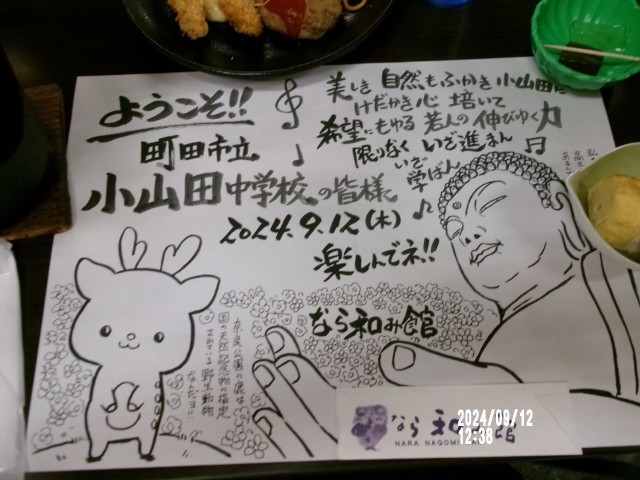 ようこそ!!
町田市立
小山田中学校の皆様
2024.9.12(木)
楽しんでネ!!
美しき自然もふかき小山田に
けだかき心 培いて
希望にもゆる 若人の伸びゆく力
限りなく いざ進まん
いざ
学ばん
なら和み館
奈良公園の鹿は
国の天然記念物に指定
されている野生動物
なんだヨ!!
なら和み館
NARA NAGOMI
2024/09/12
12:38